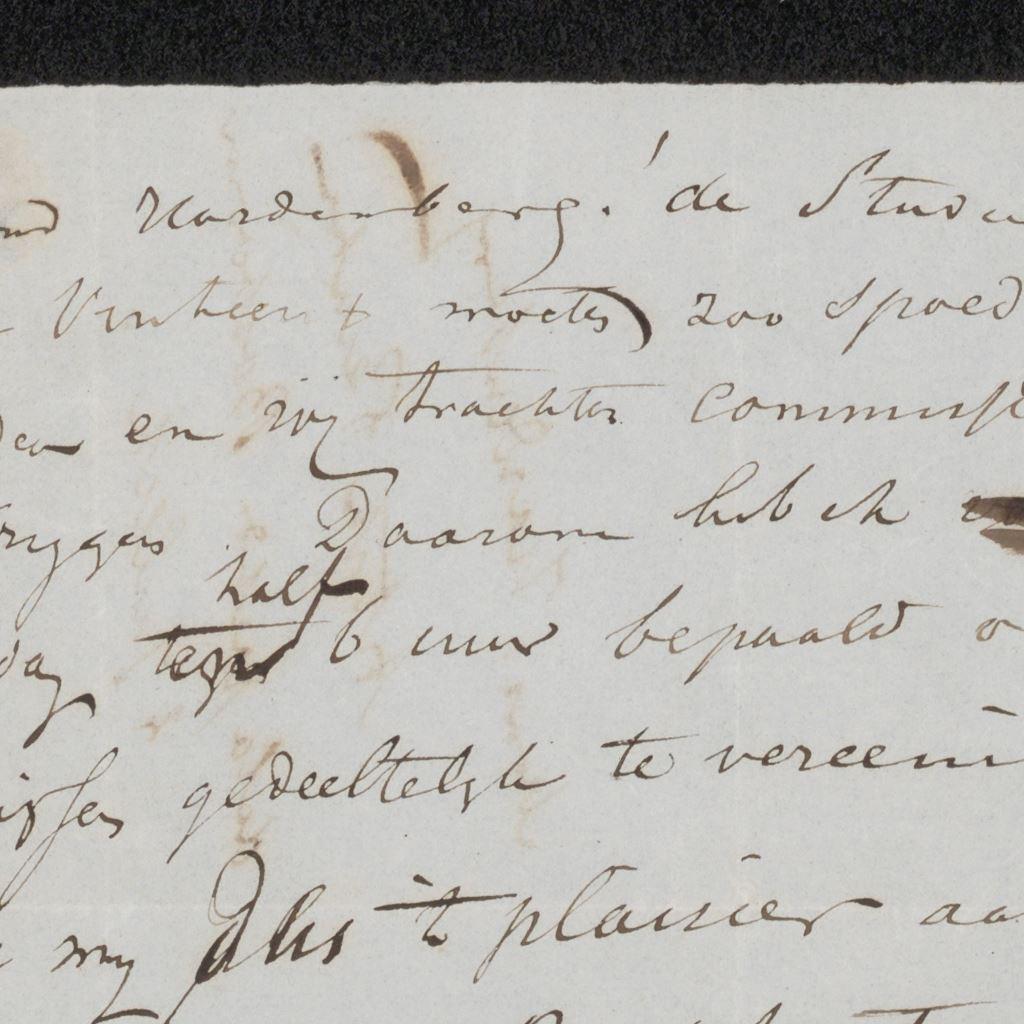 Nardenberg! de Stud
moeten zoo spoed
en wij trachten commiss
krijgen. Daarom heb ik
half
dag tegen 6 uur bepaald o
issen gedeeltelijk te vereeni
my dus 't plaisier aa